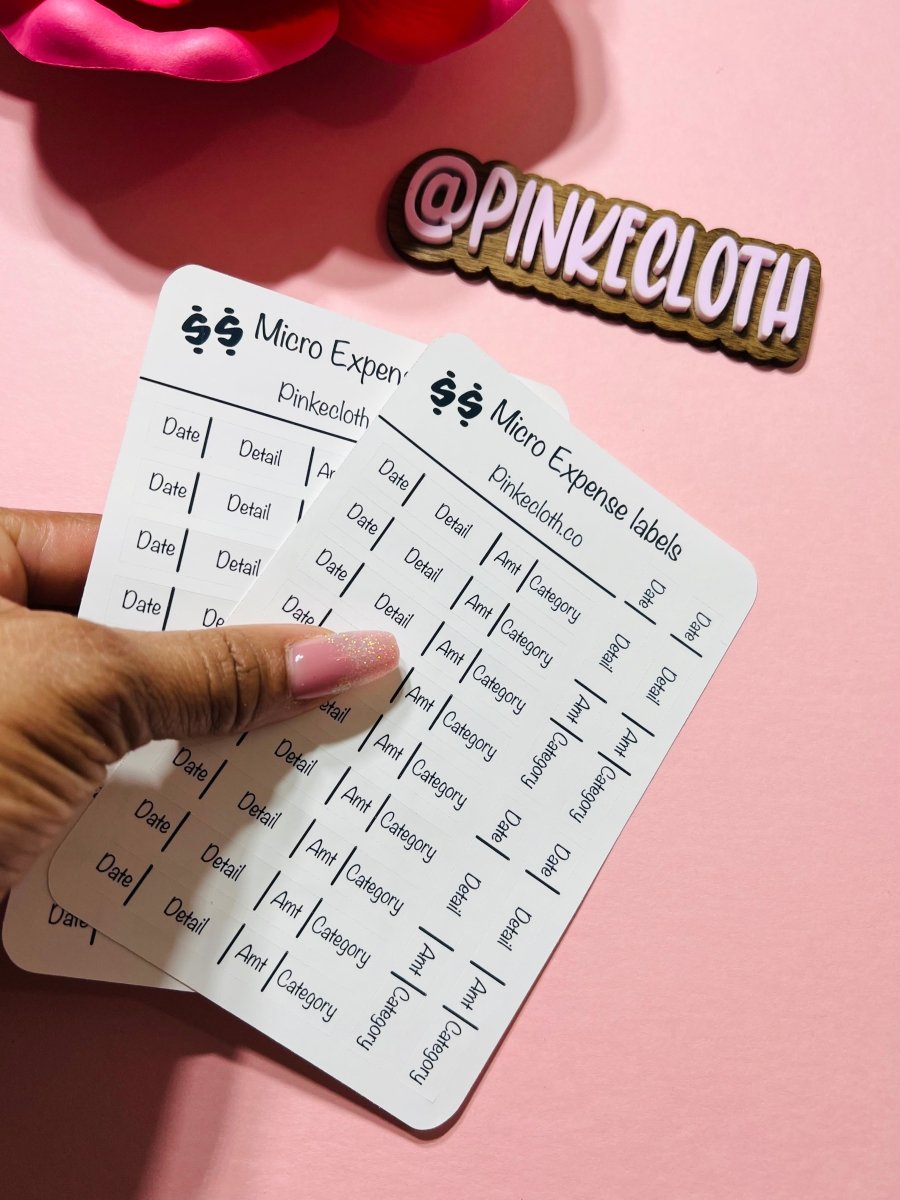 @PINKECLOTH
$$ Micro Expen
Pinkecloth
Date | Detail | A
Date | Detail |
Date | Detail
Date | De
Date |
$$ Micro Expense labels
Pinkecloth.co
Date | Detail | Amt | Category
Date | Detail | Amt | Category
Date | Detail | Amt | Category
Date | Amt | Category
etail | Amt | Category
Detail | Amt | Category
Date | Detail | Amt | Category
Date | Detail | Amt | Category
Date | Detail | Amt | Category
Date | Detail | Amt | Category
Date | Detail | Amt | Category
Date | Detail | Amt | Category
Date | Detail | Amt | Category